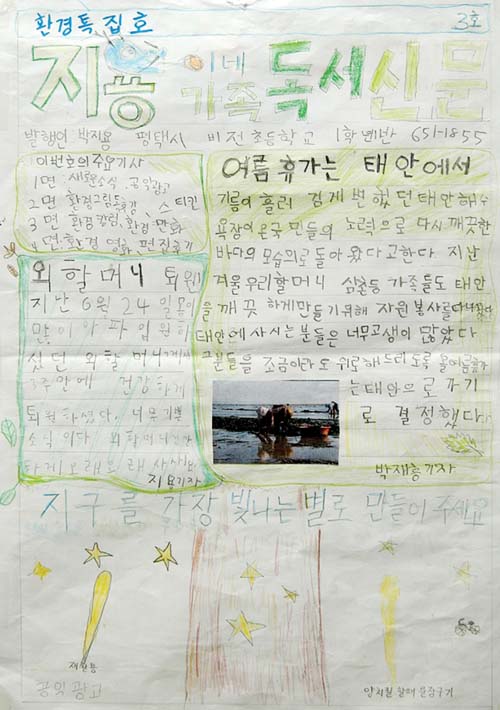 환경특집호
3호
지용이네 가족독서신문
발행인 박지용 평택시 비전초등학교 1학년 반 651-1855
이번호의주요기사
1면 새로운소식, 공익광고
2면 환경그림독후감
3면 환경칼럼, 환경만화
4면 환경 영화 편집후기
외할머니 퇴원!
지난 6월 24일 몸이
많이 아파 입원하
셨던 외할머니께서
3주만에 건강하게
퇴원하셨다. 너무기쁜
소식이다 외할머니
하게 오래오래사세요
지용기자
여름 휴가는 태안에서
기름이 흘러 검게 변했던 태안해수
욕장이 온국민들의 노력으로 다시 깨끗한
바다의 모습으로 돌아왔다고한다 지난
겨울 우리할머니 삼촌등 가족들도 태안
을 깨끗하게만들기위해 자원봉사를다녀왔다
태안에 사시는 분들은 너무고생이 많았다
그분들을 조금이라도 위로해드리도록 올여름휴가
는태안으로 가기
로 결정했다.
박재홍기자
지구를 가장 빛나는 별로 만들어 주세요
재활용
공익광고
양치할 때